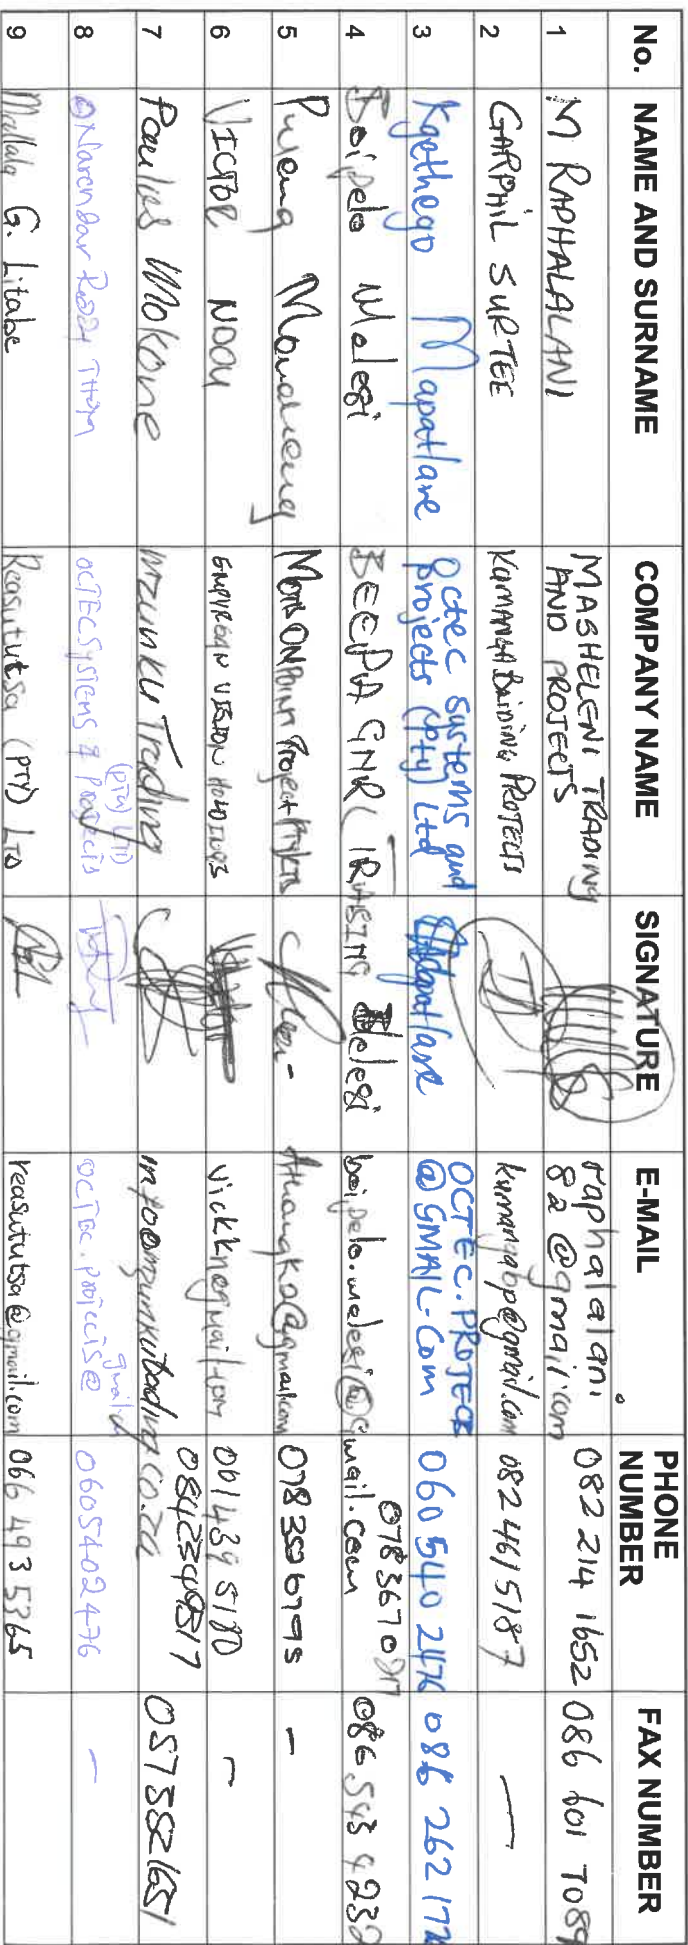 No. NAME AND SURNAME COMPANY NAME SIGNATURE E-MAIL PHONE NUMBER FAX NUMBER
1 M RAPHALALANI MASHELENI TRADING AND PROJECTS raphalalani 82@gmail.com 082 214 1652 086 601 7089
2 GARPHIL SURTEE KUMANGA BAIDING PROJECTS kumangabp@gmail.com 082 461 5187 —
3 Kgothego Mapatlane Octec Systems and projects (Pty) Ltd Mapatlane OCTEC.PROJECTS @GMAIL.COM 060 540 2476 086 262 172
4 Boipelo Melesi BEEPA GNR TRADING Melesi boipelo.melesi@gmail.com 078 3670 086 543 4232
5 078 3506795 -
6 VICTOR NDOU EMPYREAN VISION HOLDINGS 061 439 5180 -
7 Paulus Mokone Mzunku Trading info@mzunkutrading.co.za 0842349517 0573521651
8 Narendar Reddy OCTEC Systems & Projects (PTY) LTD OCTEC.projects@ gmail.com 0605402476 —
9 G. Litabe Reasututsa (PTY) LTD reasututsa@gmail.com 066 493 5365